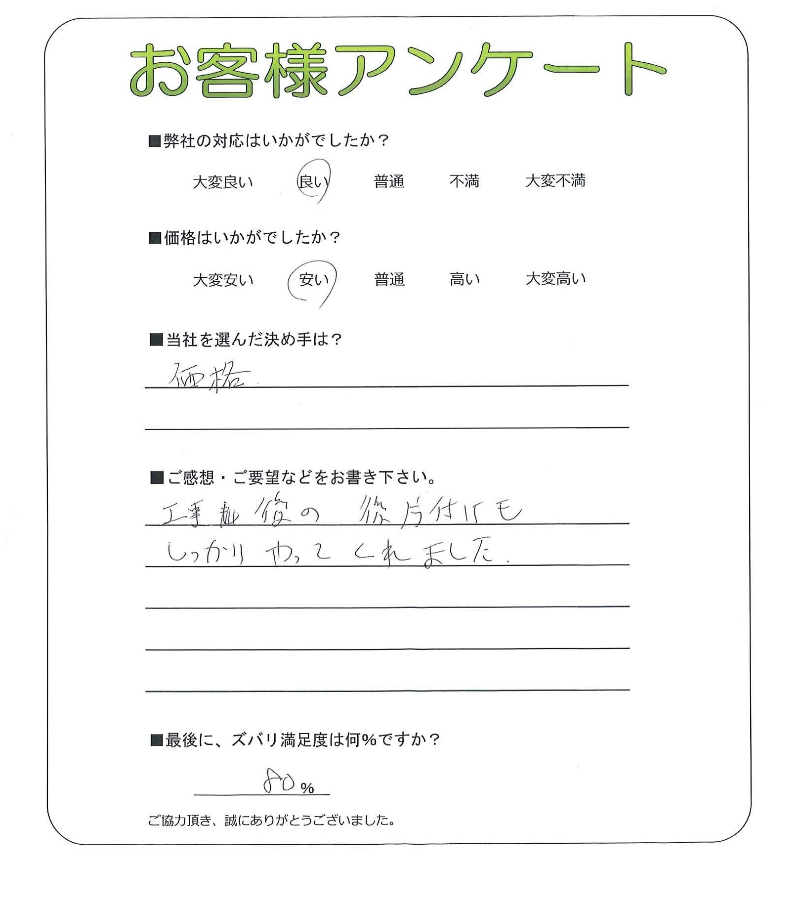 お客様アンケート
■弊社の対応はいかがでしたか？
大変良い 良い 普通 不満 大変不満
■価格はいかがでしたか？
大変安い 安い 普通 高い 大変高い
■当社を選んだ決め手は？
価格
■ご感想・ご要望などをお書き下さい。
工事 後の 後片付けも
しっかり やって くれました.
■最後に、ズバリ満足度は何%ですか？
80 %
ご協力頂き、誠にありがとうございました。